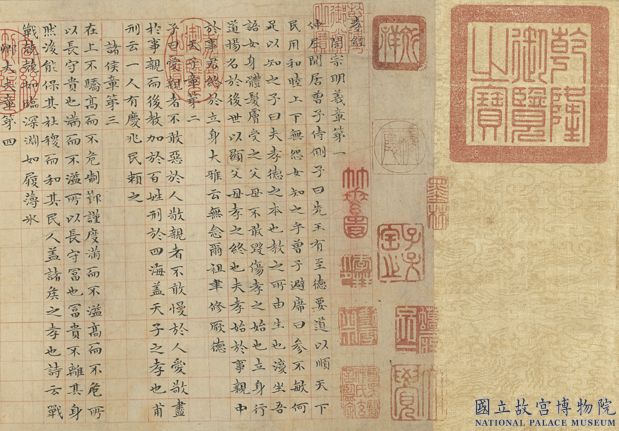 乾隆御覽之寶
孝經
開宗明義章第一
仲尼閒居曾子侍側子曰先王有至德要道以順天下
民用和睦上下無怨女知之乎曾子避席曰參不敏何
足以知之子曰夫孝德之本也教之所由生也復坐吾
語女身體髮膚受之父母不敢毀傷孝之始也立身行
道揚名於後世以顯父母孝之終也夫孝始於事親中
於事君終於立身大雅云無念爾祖聿修厥德
天子章第二
子曰愛親者不敢惡於人敬親者不敢慢於人愛敬盡
於事親而後教加於百姓刑於四海蓋天子之孝也甫
刑云一人有慶兆民賴之
諸侯章第三
在上不驕高而不危制節謹度滿而不溢高而不危所
以長守貴也滿而不溢所以長守冨也冨貴不離其身
然後能保其社稷而和其民人蓋諸侯之孝也詩云戰
戰兢兢如臨深淵如履薄氷
卿大夫章第四
國立故宮博物院
NATIONAL PALACE MUSEUM